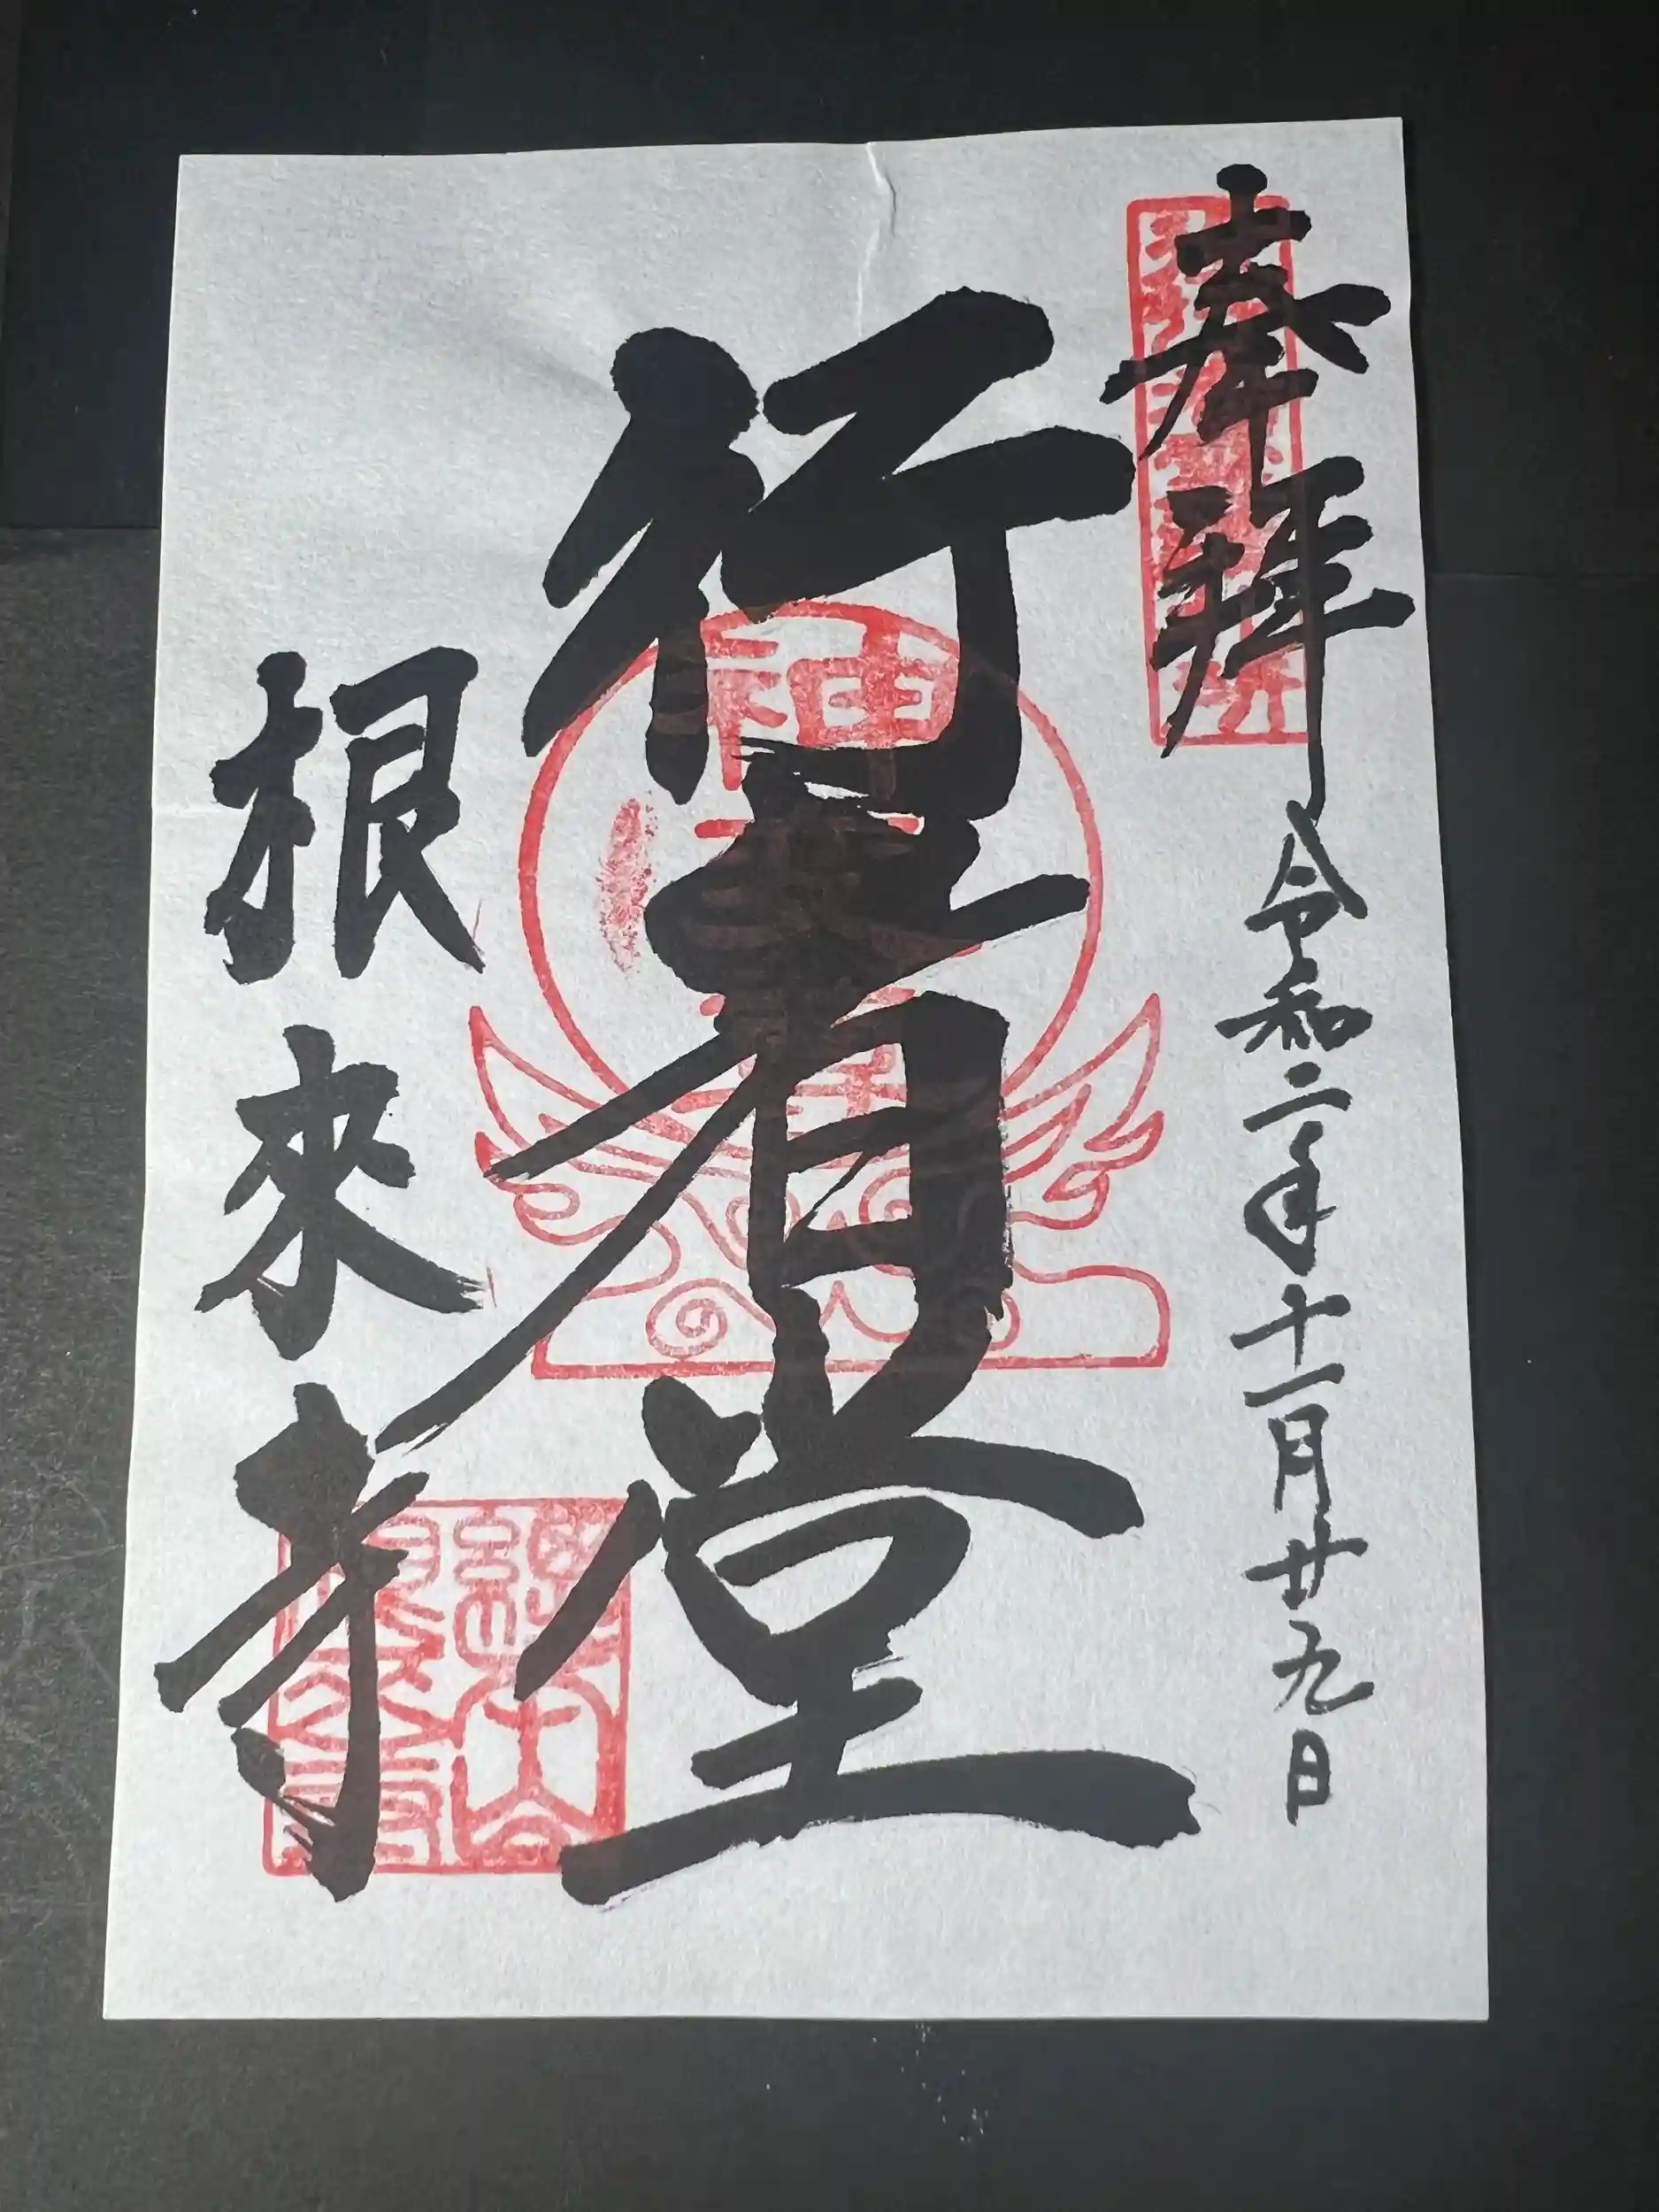 奉拝 令和二年十一月廿九日
行者堂
根來寺